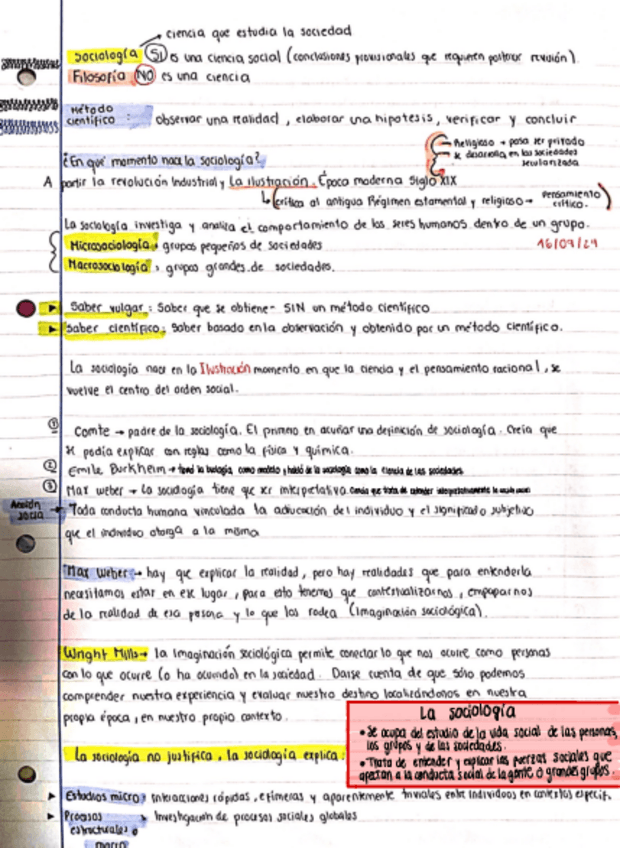 ciencia que estudia la sociedad
Sociología (SI) es una ciencia social (conclusiones provisionales que requieren posterior revisión).
Filosofía (NO) es una ciencia
Método científico : observar una realidad, elaborar una hipotesis, verificar y concluir
¿En qué momento nace la sociología?
Religioso → pasa ser privado
se desarrolla en las sociedades secularizada
A partir la revolución Industrial y la ilustración. Época moderna Siglo XIX
↳ (crítica al antiguo Régimen estamental y religioso → pensamiento crítico.)
La sociología investiga y analiza el comportamiento de los seres humanos dentro de un grupo.
Microsociología, grupos pequeños de sociedades
16/09/24
Macrosociología, grupos grandes de sociedades.
▶ Saber vulgar: Saber que se obtiene SIN un método científico
▶ Saber científico: Saber basado en la observación y obtenido por un método científico.
La sociología nace en la Ilustración momento en que la ciencia y el pensamiento racional, se
vuelve el centro del orden social.
① Comte → padre de la sociología. El primero en acuñar una definición de sociología. Creía que
se podía explicar con reglas como la física y química.
② Emile Durkheim → tomó la biología como modelo y habló de la sociología como la ciencia de las sociedades
③ Max weber → La sociología tiene que ser interpretativa.
Acción social → Toda conducta humana vinculada la del individuo y el significado subjetivo
que el individuo otorga a la misma
Max weber → hay que explicar la realidad, pero hay realidades que para entenderla
necesitamos estar en ese lugar, para esto tenemos que contextualizarnos, empaparnos
de la realidad de esa persona y lo que los rodea (Imaginación sociológica).
Wright Mills → la Imaginación sociológica permite conectar lo que nos ocurre como personas
con lo que ocurre (o ha ocurrido) en la sociedad. Darse cuenta de que sólo podemos
comprender nuestra experiencia y evaluar nuestro destino localizándonos en nuestra
propia época, en nuestro propio contexto.
La sociología
• Se ocupa del estudio de la vida social de las personas,
los grupos y de las sociedades.
• Trata de entender y explicar las fuerzas sociales que
afectan a la conducta social de la gente o grandes grupos.
La sociología no justifica, la sociología explica.
▶ Estudios micro: interacciones rápidas, efímeras y aparentemente triviales entre individuos en contextos especif.
▶ Procesos estructurales o macro → Investigación de procesos sociales globales